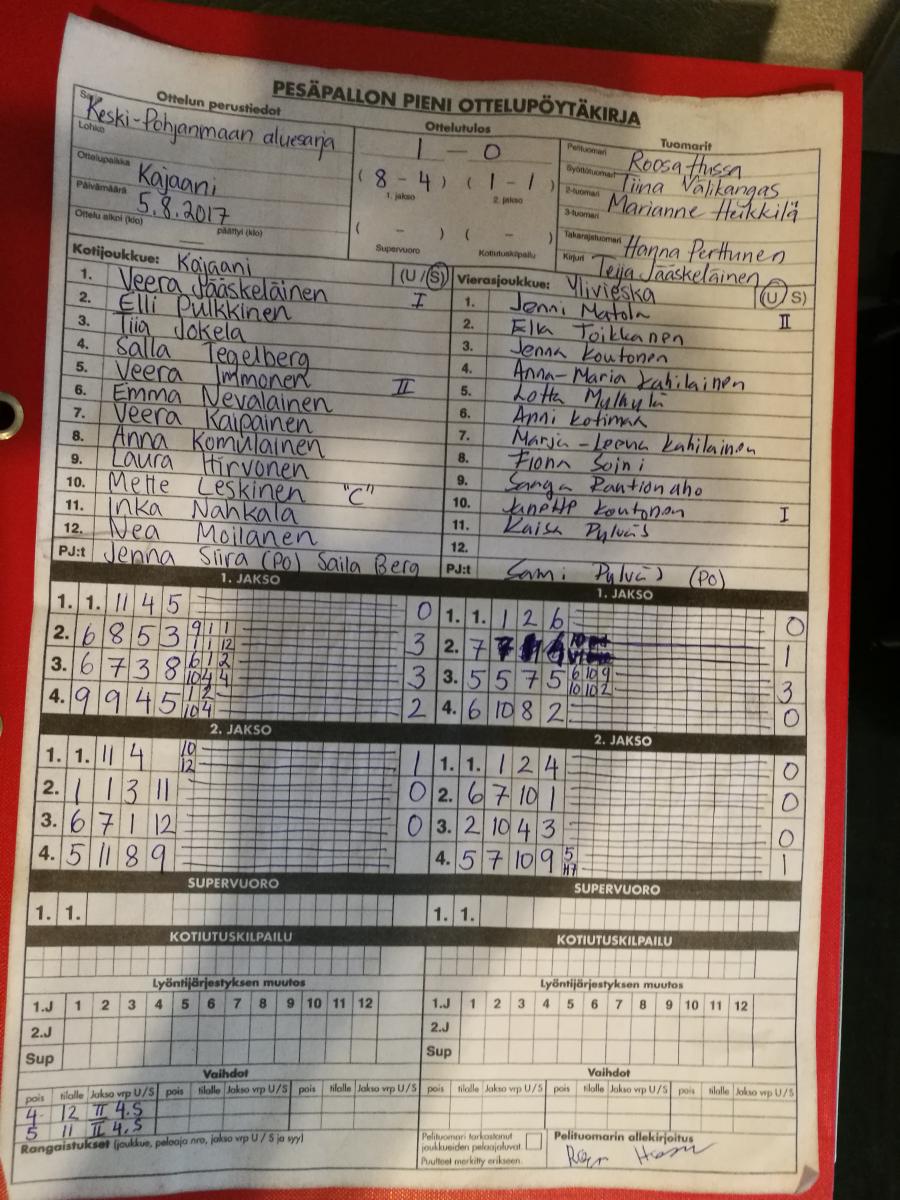 PESÄPALLON PIENI OTTELUPÖYTÄKIRJA
Ottelun perustiedot
Keski-Pohjanmaan aluesarja
Lohko
Ottelupaikka
Kajaani
Päivämäärä
5.8.2017
Ottelu alkoi (klo) — päättyi (klo)
Ottelutulos
1 – 0
( 8 – 4 ) ( 1 – 1 )
1. jakso 2. jakso
( – ) ( – )
Supervuoro Kotiutuskilpailu
Tuomarit
Pelituomari Roosa Hussa
Syöttötuomari Tiina Välikangas
2-tuomari Marianne Heikkilä
3-tuomari
Takarajatuomari Hanna Perttunen
Kirjuri Teija Jääskeläinen
Kotijoukkue: Kajaani (U / S)
1. Veera Jääskeläinen I
2. Elli Pulkkinen
3. Tiia Jokela
4. Salla Tegelberg
5. Veera Immonen II
6. Emma Nevalainen
7. Veera Kaipainen
8. Anna Komulainen
9. Laura Hirvonen
10. Mette Leskinen "C"
11. Inka Nahkala
12. Nea Moilanen
PJ:t Jenna Siira (PO) Saila Berg
Vierasjoukkue: Ylivieska (U / S)
1. Jenni Matola II
2. Ella Toikkanen
3. Jenna Koutonen
4. Anna-Maria Kahilainen
5. Lotta Myllylä
6. Anni Kotimäk
7. Marja-Leena Kahilainen
8. Fiona Soini
9. Sanga Rautionaho
10. Janette Koutonen I
11. Kaisa Pylväs
12.
PJ:t Sami Pylväs (PO)
1. JAKSO
1. 1. 11 4 5 0
2. 6 8 5 3 9 1 1 1 1 12 3
3. 6 7 3 8 6 1 2 10 4 4 3
4. 9 9 4 5 1 2 10 4 2
1. JAKSO
1. 1. 1 2 6 0
2. 7 1
3. 5 5 7 5 6 10 9 10 10 2 3
4. 6 10 8 2 0
2. JAKSO
1. 1. 11 4 10 12 1
2. 1 1 3 11 0
3. 6 7 1 12 0
4. 5 11 8 9
2. JAKSO
1. 1. 1 2 4 0
2. 6 7 10 1 0
3. 2 10 4 3 0
4. 5 7 10 9 5 1
SUPERVUORO
1. 1.
SUPERVUORO
1. 1.
KOTIUTUSKILPAILU
KOTIUTUSKILPAILU
Lyöntijärjestyksen muutos
1.J 1 2 3 4 5 6 7 8 9 10 11 12
2.J
Sup
Lyöntijärjestyksen muutos
1.J 1 2 3 4 5 6 7 8 9 10 11 12
2.J
Sup
Vaihdot
pois tilalle Jakso vrp U/S pois tilalle Jakso vrp U/S pois tilalle Jakso vrp U/S
4 12 II 4.S
5 11 II 4.S
Vaihdot
pois tilalle Jakso vrp U/S pois tilalle Jakso vrp U/S pois tilalle Jakso vrp U/S
Rangaistukset (joukkue, pelaaja nro, jakso vrp U / S ja syy)
Pelituomari tarkastanut
joukkueiden pelaajaluvat.
Puutteet merkitty erikseen.
Pelituomarin allekirjoitus